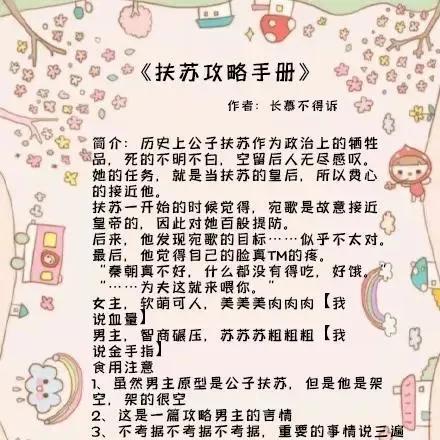 《扶苏攻略手册》
作者：长慕不得诉
简介：历史上公子扶苏作为政治上的牺牲
品，死的不明不白，空留后人无尽感叹。
她的任务，就是当扶苏的皇后，所以费心
的接近他。
扶苏一开始的时候觉得，宛歌是故意接近
皇帝的，因此对她百般提防。
后来，他发现宛歌的目标……似乎不太对。
最后，他觉得自己的脸真TM的疼。
“秦朝真不好，什么都没有得吃，好饿。
“……为夫这就来喂你。”
女主，软萌可人，美美美肉肉肉【我
说血量】
男主，智商碾压，苏苏苏粗粗粗【我
说金手指】
食用注意
1、虽然男主原型是公子扶苏，但是他是架
空，架的很空
2、这是一篇攻略男主的言情
3、不考据不考据不考据，重要的事情说三遍